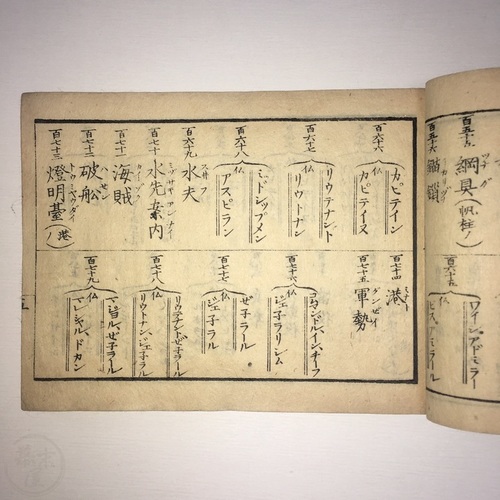 百五十五
綱具(帆柱ノ)
百五十六
百六十五
ワイン、アドミラー
仏
百六十六
カピテイン
仏
カピテイヌ
百六十七
リウテナント
仏
リウトナン
百六十八
ミドシップメン
仏
アスピラン
百六十九
スヰフ
水夫
百七十
ミヅサキアンナイ
水先案内
百七十一
カイゾク
海賊
百七十二
ハセン
破舩
百七十三
トウミヤウダイ
燈明臺(港ノ)
百七十四
ミナト
港
百七十五
グンゼイ
軍勢
百七十六
コムマンドル、イン、チーフ
仏
ジェ子ラリシム
百七十七
ゼ子ラール
仏
ジェ子ラル
百七十八
リウテナントゼ子ラール
仏
リウトナン、ジェ子ラル
百七十九
マジョル、ゼ子ラール
仏
マレシャル、ドカン